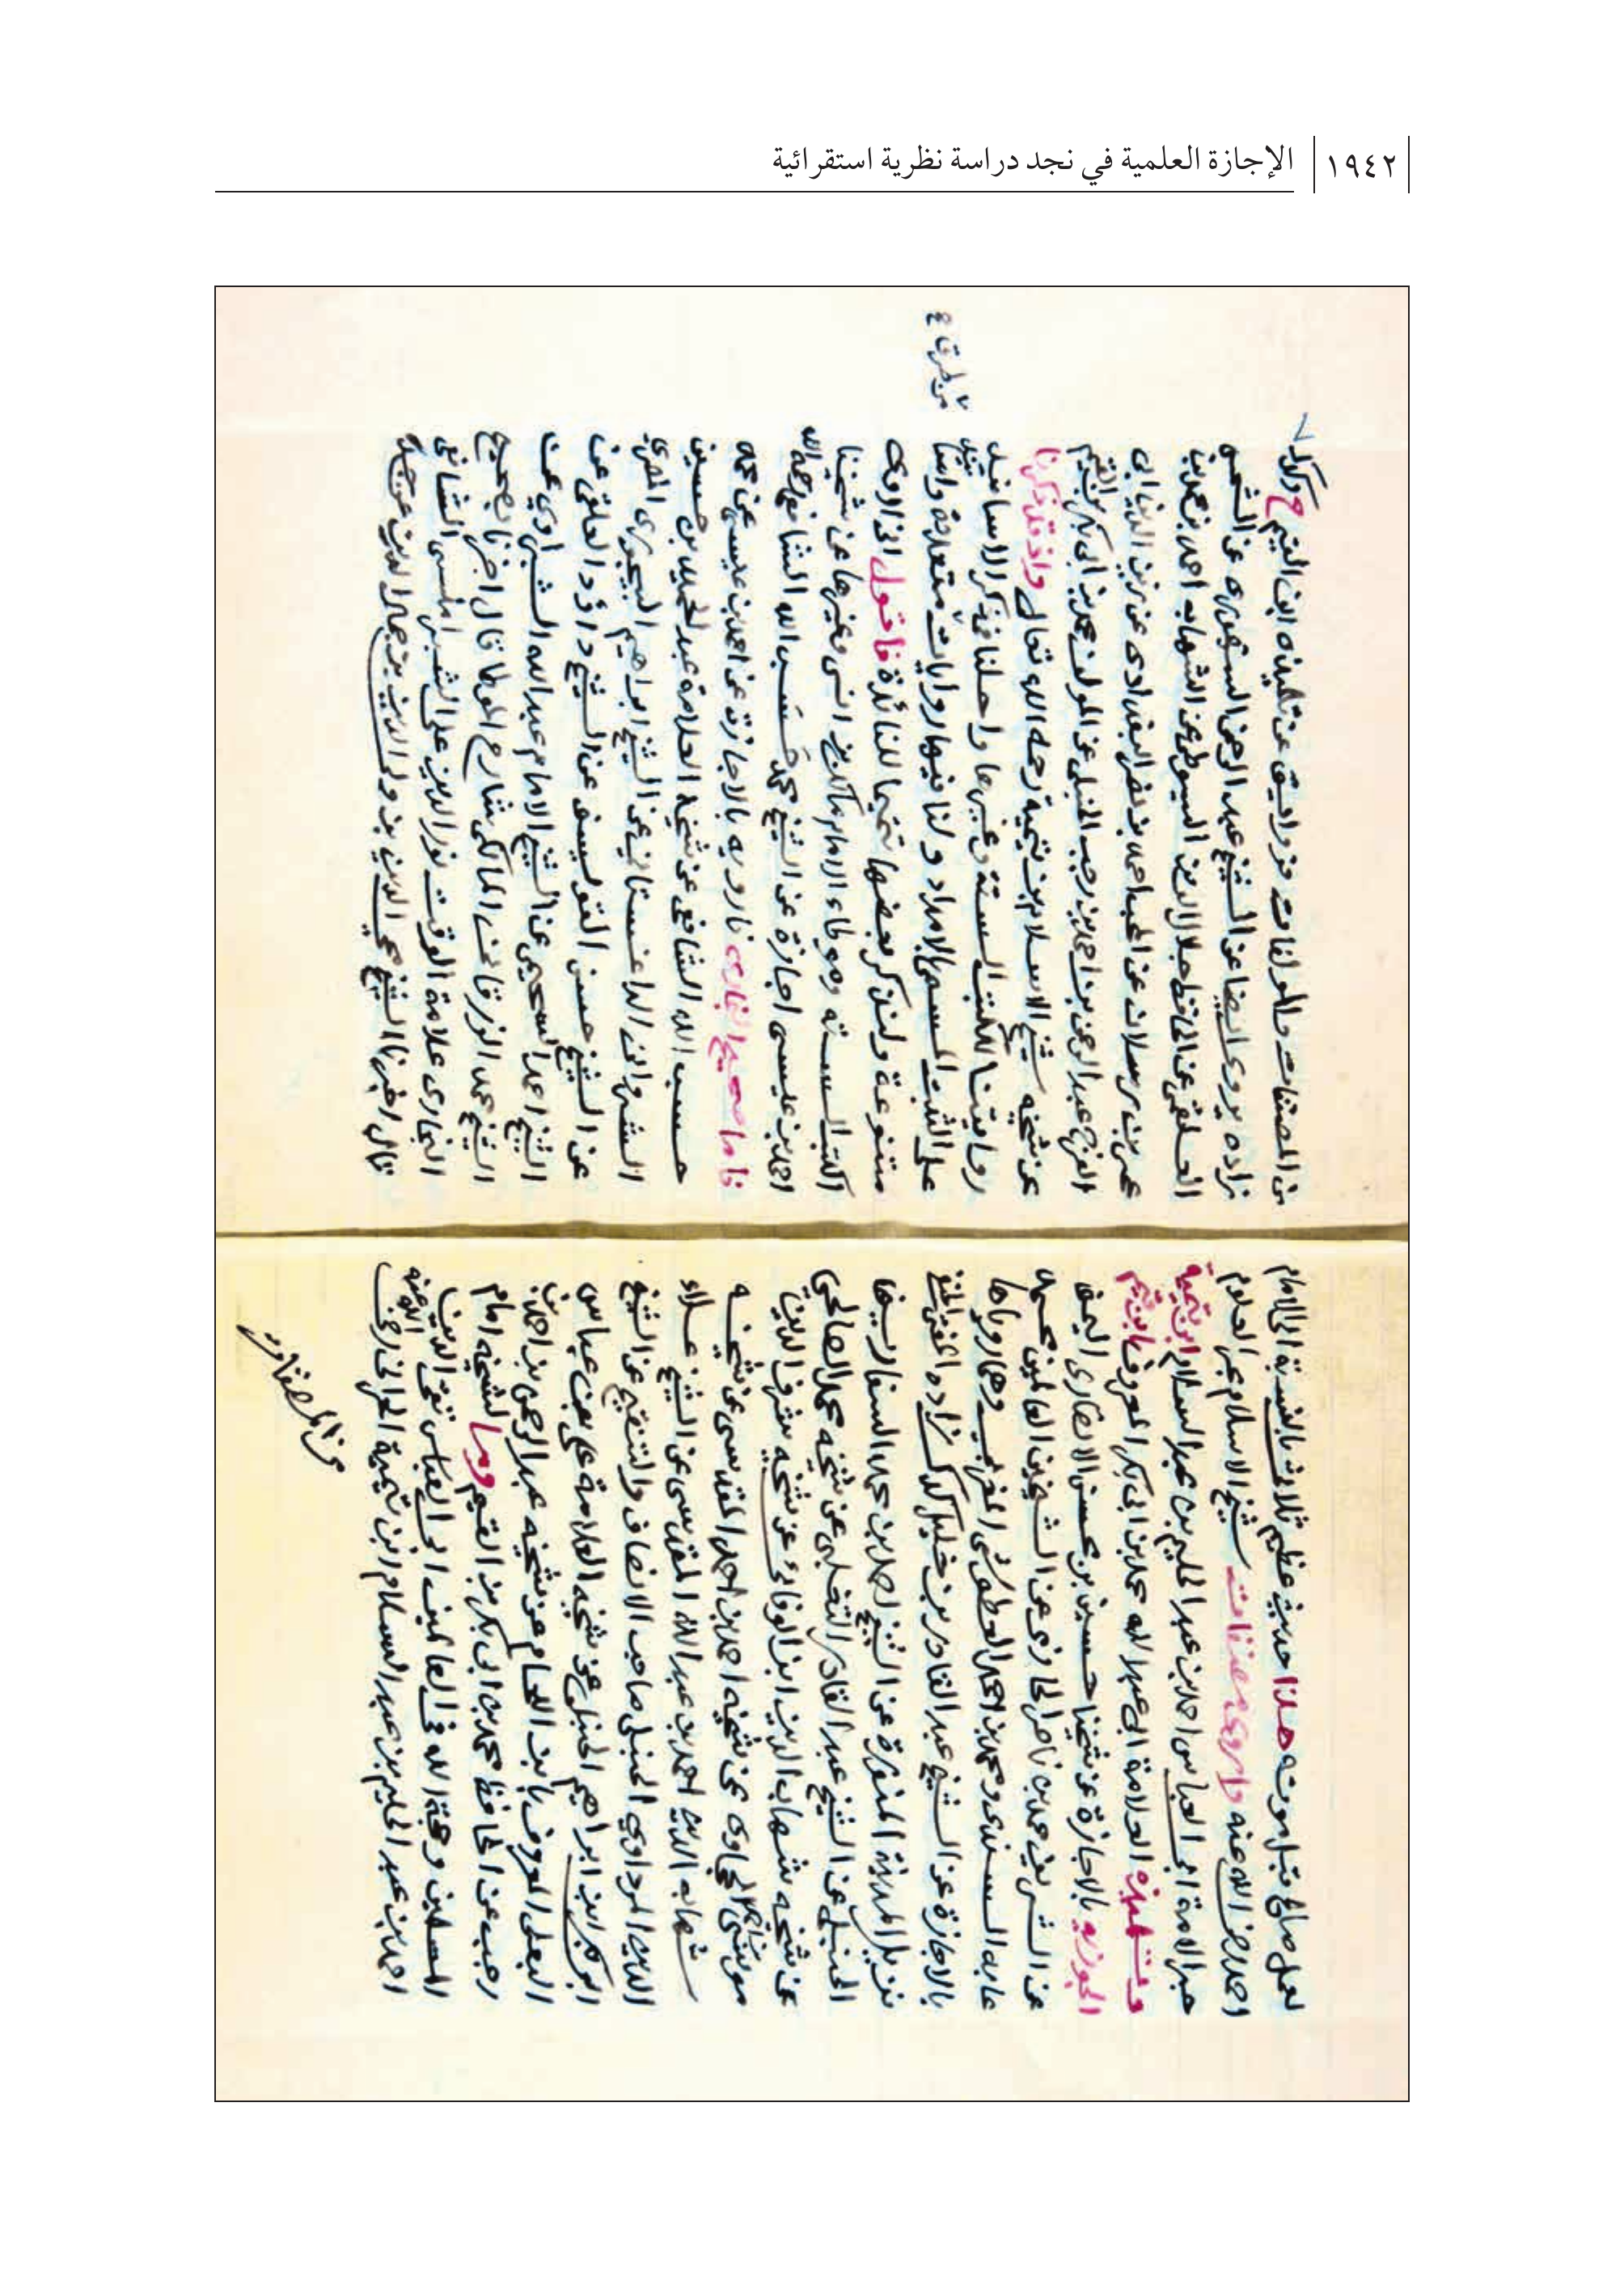 ١٩٤٢ الإجازة العلمية في نجد دراسة نظرية استقرائية
صالح قبل موته هذا حديث عظيم ثلاث بالنسبة الى الامام
احمد رضي الله عنه واروي مصنفات شيخ الاسلام بحر العلوم
حبر الامة ابي العباس احمد بن عبد الحليم بن عبد السلام ابن تيمية
وتلميذه العلامة ابي عبد الله محمد بن ابي بكر المعروف بابن قيم
الجوزيه بالاجازة عن شيخنا حسين بن محسن الانصاري اليمني
عن الشريف محمد بن ناصر الحازمي عن الشيخين العالمين محمد
عابد السندي ومحمد بن احمد العطوشي المغربي وهما روياها
بالاجازة عن الشيخ عبد القادر بن خليل كدك زاده
نزيل المدينة المنورة عن الشيخ احمد بن محمد السفاريني
الحنبلي عن الشيخ عبد القادر التغلبي عن شيخه محمد الصالحي
عن شيخه شهاب الدين ابن الوفائي عن شيخه شرف الدين
موسى الحجاوي عن شيخه احمد بن احمد المقدسي عن شيخه
شهاب الدين احمد بن عبد الله المقدسي عن الشيخ علاء
الدين المرداوي الحنبلي صاحب الانصاف والتنقيح عن الشيخ
ابو بكر ابن ابراهيم الحنبلي عن شيخه العلامة علي بن عباس
البعلي المعروف بابن اللحام عن شيخه عبد الرحمن بن احمد بن
رجب عن الحافظ محمد بن ابي بكر بن القيم وما لشيخه امام
المسلمين وحجة الله في العالمين ابو العباس تقي الدين
احمد بن عبد الحليم بن عبد السلام ابن تيمية الحراني رضي الله عنه
من المصنفات
من المصنفات والمولفات عن تلميذه ابن القيم ح وكذلك
زاده يروي ايضا عن الشيخ عبد الرحمن عن الشمس
العلقمي عن الحافظ جلال الدين السيوطي عن الشهاب احمد بن محمد بن
عمر بن رسلان عن المحب احمد بن نصر البغدادي عن زين الدين ابي
الفرج عبد الرحمن بن احمد بن رجب الحنبلي عن المولف محمد بن ابي بكر بن القيم
عن شيخه شيخ الاسلام بن تيمية رحمه الله تعالى واذ قد ذكرنا
روايتنا للكتب الستة وغيرها واحلنا في ذكر الاسانيد
على الثبت المسمى الامداد ولنا فيها روايات متعددة
من طرق
متنوعة ولنذكر بعضها تتميما للفائدة فاقول اني اروي
الكتب السته وموطاء الامام مالك بن انس وغيرها عن شيخنا
احمد بن عيسى اجازة عن الشيخ محمد حسب الله الشافعي رحمه الله
فاما صحيح البخاري فارويه بالاجازة عن احمد بن عيسى عن محمد
حسب الله الشافعي عن شيخه العلامة عبد الحميد بن حسين
الشرواني الداغستاني عن الشيخ ابراهيم البيجوري المصري
عن الشيخ حسن القويسني عن الشيخ داؤد القلعي عن
الشيخ احمد السحيمي عن الشيخ الامام عبد الله الشبراوي عن
الشيخ محمد الزرقاني المالكي شارح الموطا قال اخبرنا بصحيح
البخاري علامة الوقت نور الدين علي الشبراملسي الشافعي
قال اخبرنا الشيخ محيي الدين بن ولي الدين بن جمال الدين عن جده